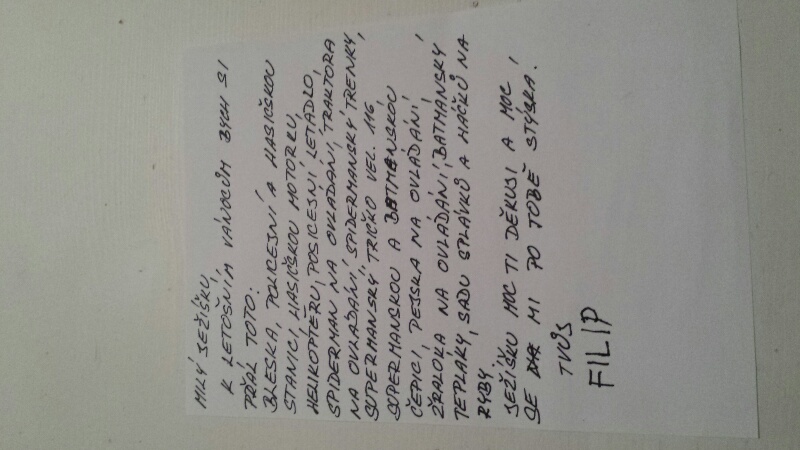 MILÝ JEŽÍŠKU,
K LETOŠNÍM VÁNOCŮM BYCH SI
PŘÁL TOTO:
BLESKA, POLICEJNÍ A HASIČSKOU
STANICI, HASIČSKOU MOTORKU,
HELIKOPTÉRU, POLICEJNÍ LETADLO,
SPIDERMAN NA OVLÁDÁNÍ, TRAKTORA
NA OVLÁDÁNÍ, SPIDERMANSKÝ TRENKY,
SUPERMANSKÝ TRIČKO VEL. 116
SUPERMANSKOU A BATMENSKOU
ČEPICI, PEJSKA NA OVLÁDÁNÍ,
ŽRALOKA NA OVLÁDÁNÍ, BATMANSKÝ
TEPLÁKY, SADU SPLÁVKŮ A HÁČKŮ NA
RYBY.
JEŽÍŠKU MOC TI DĚKUJI A MOC
SE MI PO TOBĚ STÝSKÁ!
TVŮJ
FILIP